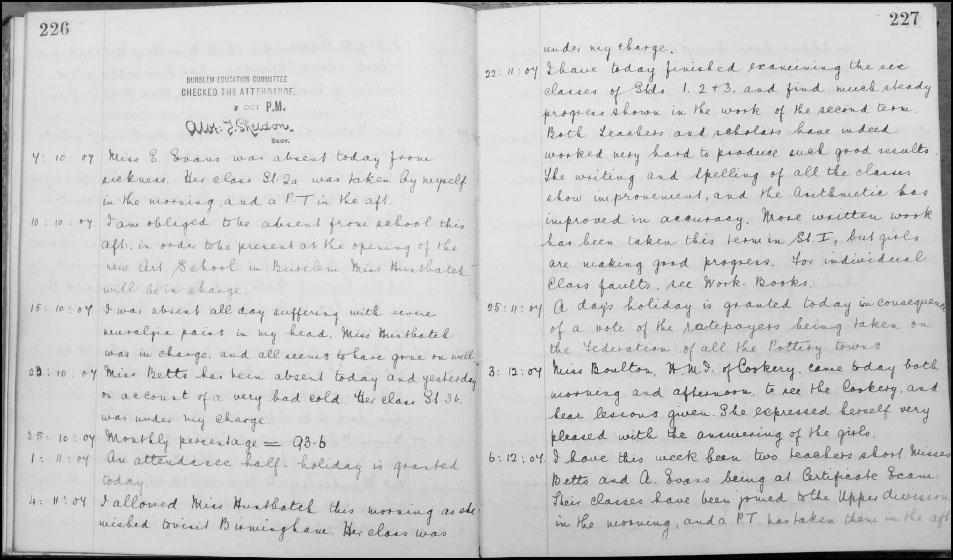 226
BURSLEM EDUCATION COMMITTEE
CHECKED THE ATTENDANCE,
2 OCT P.M.
J. Sheldon.
Secr.
7: 10: 07 Miss E. Evans was absent today from
sickness. Her class St. 2a was taken by myself
in the morning, and a P.T in the aft.
10: 10: 07 I am obliged to be absent from school this
aft: in order to be present at the opening of the
new Art School in Burslem. Miss Huntbatch
will be in charge.
15: 10: 07 I was absent all day suffering with severe
neuralgia pains in my head. Miss Huntbatch
was in charge, and all seems to have gone on well.
23: 10: 07 Miss Betts has been absent today and yesterday
on account of a very bad cold. Her class St 3b.
was under my charge.
25: 10: 07 Monthly percentage = 93.6
1: 11: 07 An attendance half-holiday is granted
today.
4: 11: 07 I allowed Miss Huntbatch this morning as she
wished to visit Birmingham. Her class was
227
under my charge.
22: 11: 07 I have today finished examining the six
classes of Stds. 1. 2 + 3. and find much steady
progress shown in the work of the second term.
Both Teachers and scholars have indeed
worked very hard to produce such good results.
The writing and spelling of all the classes
show improvement, and the Arithmetic has
improved in accuracy. More written work
has been taken this term in St. I, but girls
are making good progress. For individual
Class faults, see Work-Books.
25: 11: 07 A day's holiday is granted today in consequence
of a vote of the ratepayers being taken on
the Federation of all the Pottery towns
3: 12: 07 Miss Boulton, H.M.I. of Cookery. came today both
morning and afternoon, to see the Cookery, and
hear lessons given. She expressed herself very
pleased with the answering of the girls.
6: 12: 07. I have this week been two teachers short. Misses
Betts and A. Evans being at Certificate Exam:
Their classes have been joined to the Upper division
in the morning, and a P.T. has taken them in the aft